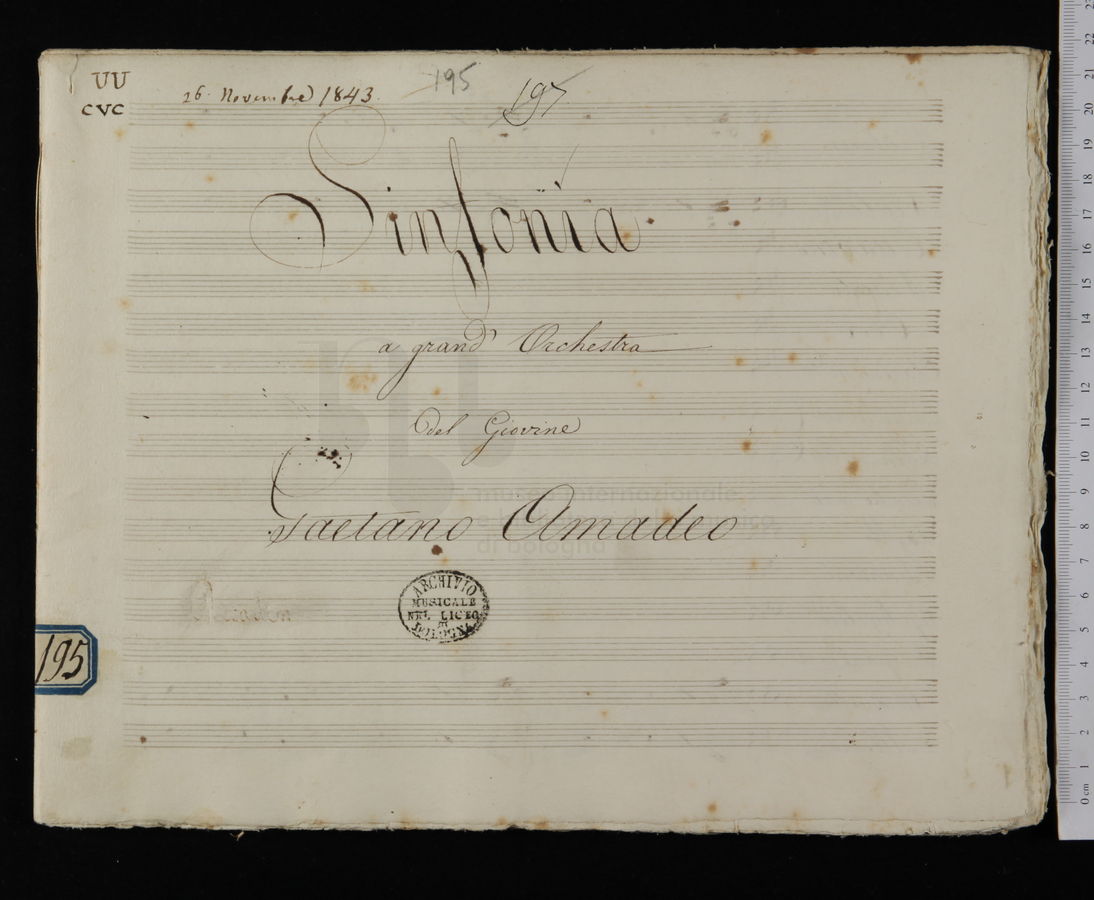 UU
CVC
26. Novembre 1843.
195
195
Sinfonia
a grand' Orchestra
del Giovine
Gaetano Amadeo
museo internazionale
e biblioteca della musica
di bologna
ARCHIVIO
MUSICALE
NEL LICEO
DI
BOLOGNA
195
0 cm 1 2 3 4 5 6 7 8 9 10 11 12 13 14 15 16 17 18 19 20 21 22 23